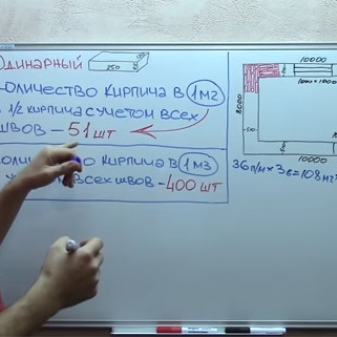 Одинарный
250
количество кирпича в 1м2
в 1/2 кирпича с учетом всех
швов - 51 шт
количество кирпича в 1м3
всех швов - 400 шт
10000
8000
10000
36 п/м × 3 в = 108 м2